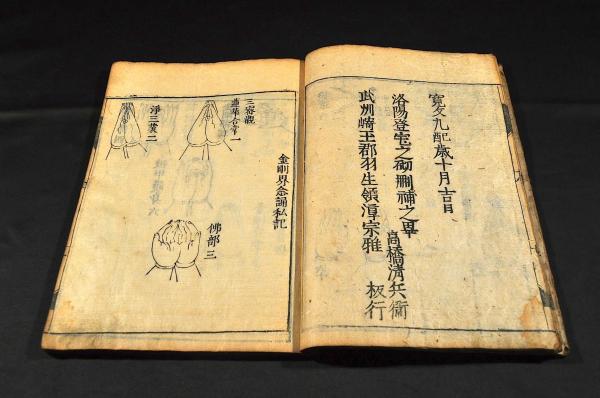 寛文九己酉歳十月吉日
洛陽登之砌刪補之畢
武州崎玉郡羽生領宗雅
高橋清兵衛
板行
金剛界念誦私記
三密觀
蓮華合掌一
淨三業二
佛部三